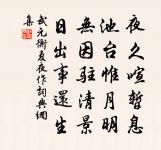 夜久喧暫息
池台惟月明
無因駐清景
日出事還生
武元衡夏夜作詞典網
集